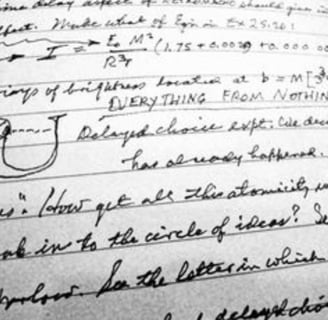 me delay aspect of should give
Make what of Eqn in Ex 25.26:
I = E₀ M² / R²r (1.75 + 0.0029 + 0.000 00
rings of brightness located at b = M [3
EVERYTHING FROM NOTHIN
Delayed choice expt. We dec
has already happened.
us". How get all this atomicity
in to the circle of ideas? Se
See the letter in which
delayed cho